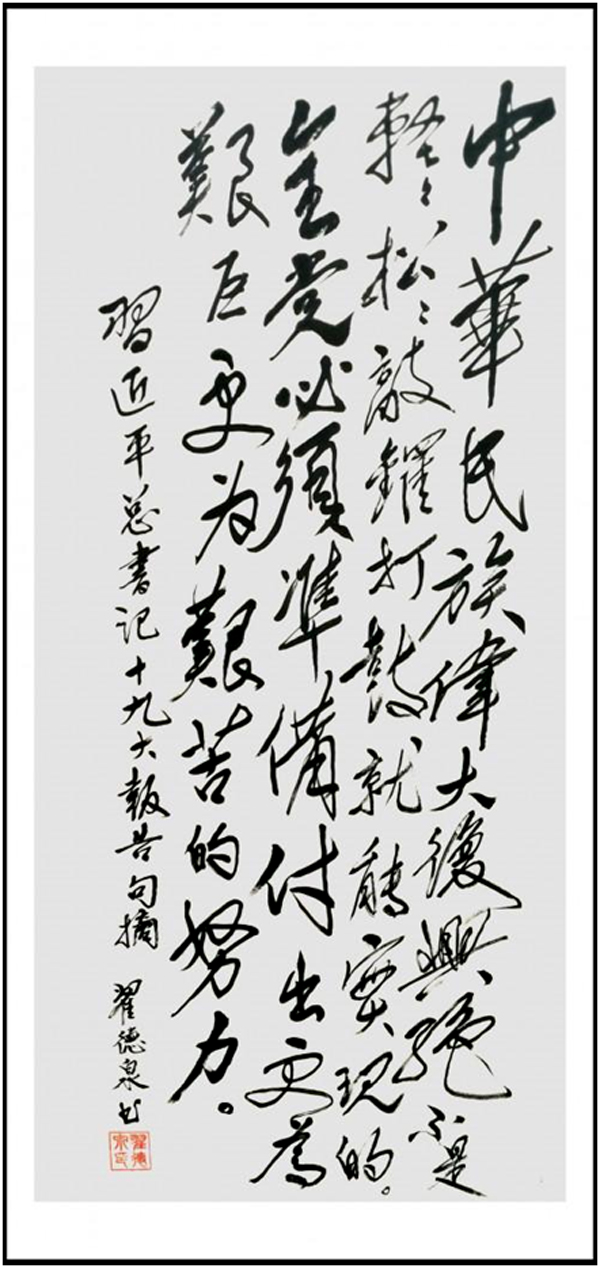 中華民族偉大復興絕不是
輕輕松松敲鑼打鼓就能實現的。
全党必須準備付出更為
艱巨更为艱苦的努力。
習近平总書记十九大報告句摘 翟德泉书
翟德泉印